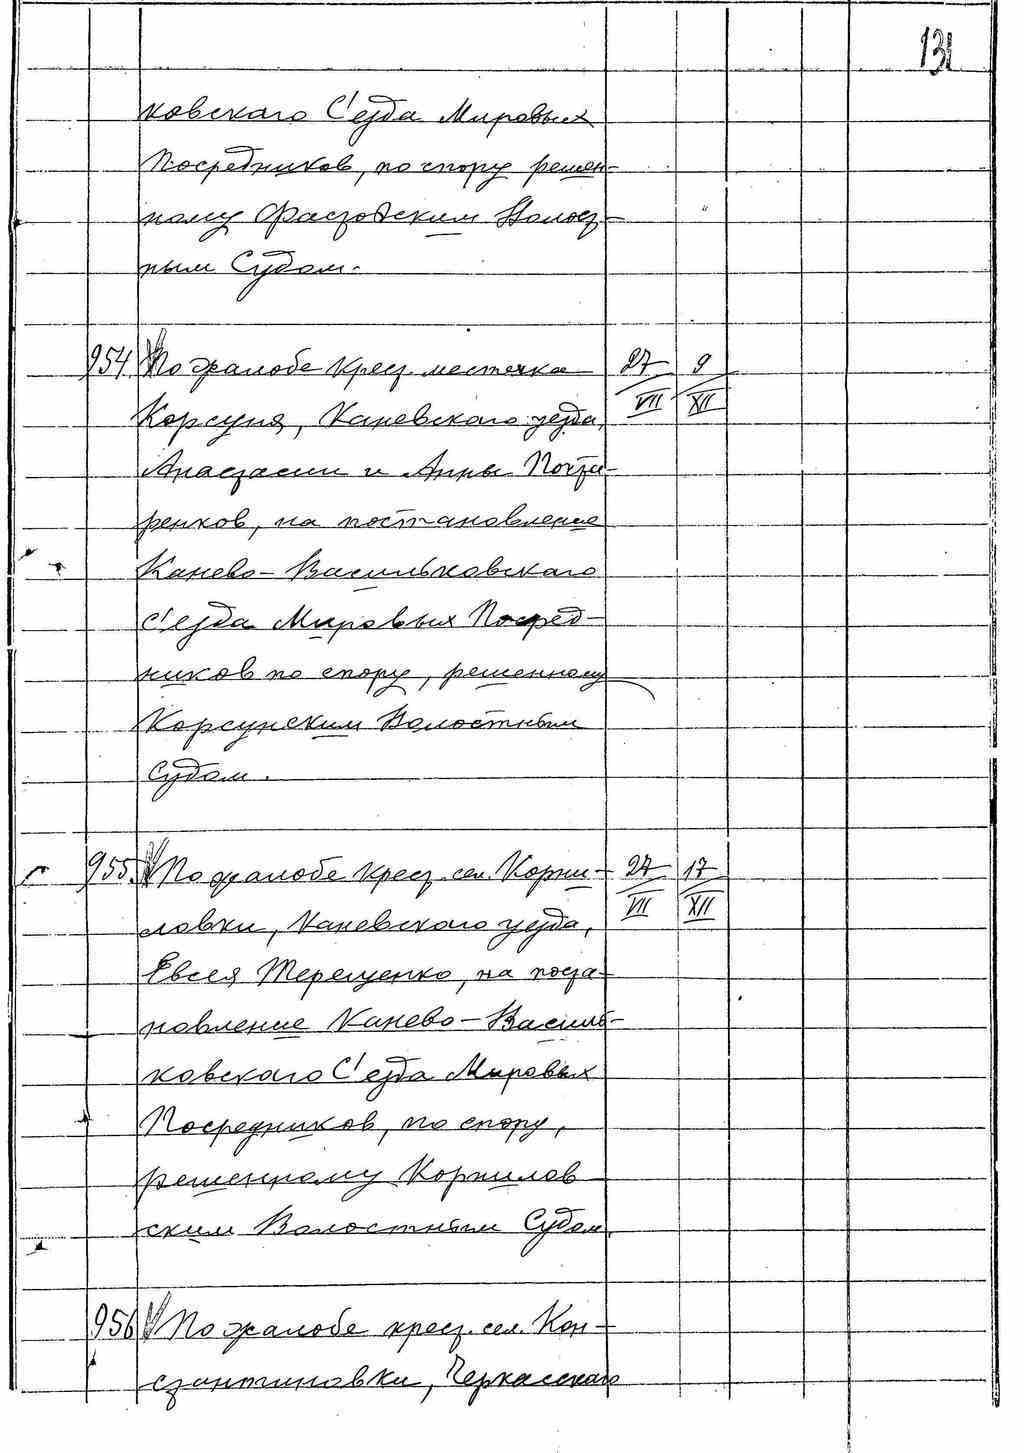 131
ковскаго С'езда Мировых
Посредников, по спору решен-
ному Фастовским Волост-
ным Судом.
954. По жалобе крест. местечка 27/VII 9/XII
Корсуня, Каневскаго уезда,
Анастасии и Анны Почта-
ренков, на постановление
Канево-Васильковскаго
С'езда Мировых Посред-
ников по спору, решенному
Корсунским Волостным
Судом.
955. По жалобе крест. сел. Корни- 27/VII 17/XII
ловки, Каневскаго уезда,
Евсея Терещенко, на поста-
новление Канево-Василь-
ковскаго С'езда Мировых
Посредников, по спору,
решенному Корнилов
ским Волостным Судом.
956 По жалобе крест. сел. Кон-
стантиновки, Черкасскаго